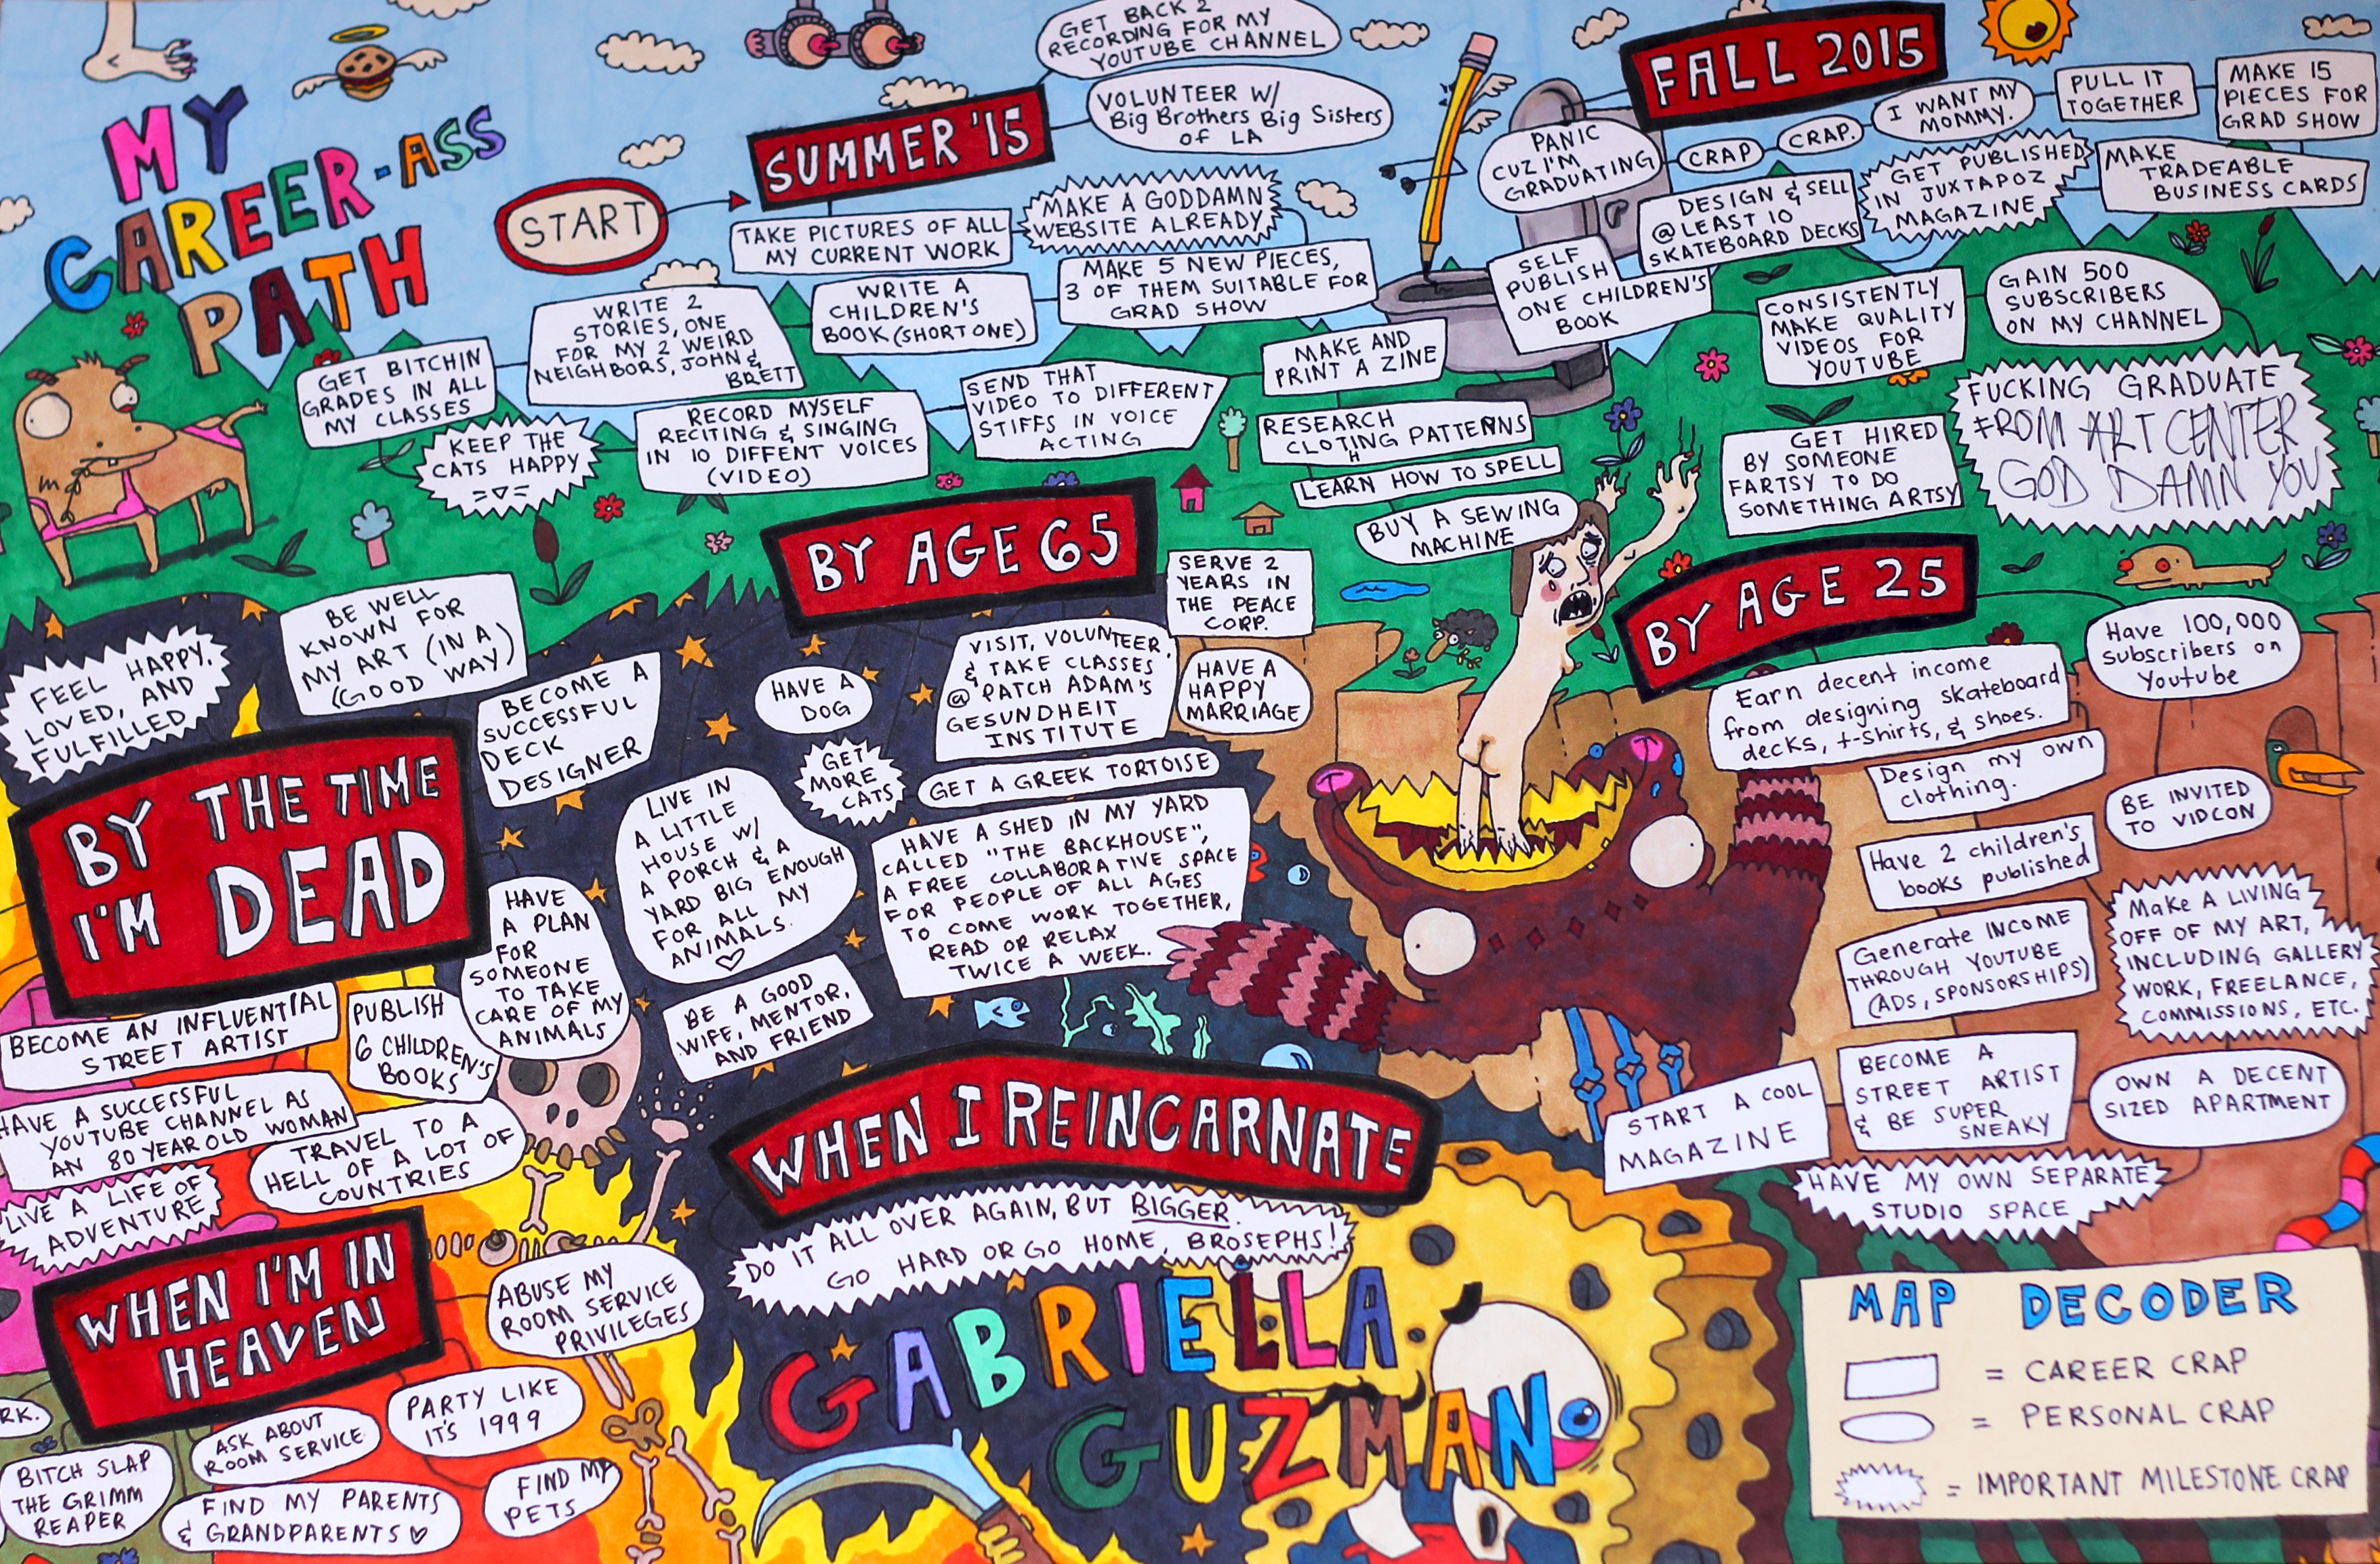 MY
CAREER-ASS
PATH
START
SUMMER '15
GET BACK 2
RECORDING FOR MY
YOUTUBE CHANNEL
VOLUNTEER W/
Big Brothers Big Sisters
of LA
TAKE PICTURES OF ALL
MY CURRENT WORK
MAKE A GODDAMN
WEBSITE ALREADY
MAKE 5 NEW PIECES,
3 OF THEM SUITABLE FOR
GRAD SHOW
WRITE A
CHILDREN'S
BOOK (SHORT ONE)
WRITE 2
STORIES, ONE
FOR MY 2 WEIRD
NEIGHBORS, JOHN &
BRETT
GET BITCHIN
GRADES IN ALL
MY CLASSES
KEEP THE
CATS HAPPY
RECORD MYSELF
RECITING & SINGING
IN 10 DIFFENT VOICES
(VIDEO)
SEND THAT
VIDEO TO DIFFERENT
STIFFS IN VOICE
ACTING
MAKE AND
PRINT A ZINE
RESEARCH
CLOTHING PATTERNS
LEARN HOW TO SPELL
BUY A SEWING
MACHINE
FALL 2015
PANIC
CUZ I'M
GRADUATING
CRAP
CRAP.
I WANT MY
MOMMY.
PULL IT
TOGETHER
MAKE 15
PIECES FOR
GRAD SHOW
MAKE
TRADEABLE
BUSINESS CARDS
GET PUBLISHED
IN JUXTAPOZ
MAGAZINE
DESIGN & SELL
@ LEAST 10
SKATEBOARD DECKS
SELF
PUBLISH
ONE CHILDREN'S
BOOK
CONSISTENTLY
MAKE QUALITY
VIDEOS FOR
YOUTUBE
GAIN 500
SUBSCRIBERS
ON MY CHANNEL
FUCKING GRADUATE
FROM ART CENTER
GOD DAMN YOU
GET HIRED
BY SOMEONE
FARTSY TO DO
SOMETHING ARTSY
BY AGE 25
Have 100,000
subscribers on
Youtube
Earn decent income
from designing skateboard
decks, t-shirts, & shoes.
Design my own
clothing.
BE INVITED
TO VIDCON
Have 2 children's
books published
Generate INCOME
THROUGH YOUTUBE
(ADS, SPONSORSHIPS)
Make A LIVING
OFF OF MY ART,
INCLUDING GALLERY
WORK, FREELANCE,
COMMISSIONS, ETC.
BECOME A
STREET ARTIST
& BE SUPER
SNEAKY
OWN A DECENT
SIZED APARTMENT
START A COOL
MAGAZINE
HAVE MY OWN SEPARATE
STUDIO SPACE
BY AGE 65
SERVE 2
YEARS IN
THE PEACE
CORP.
HAVE A
HAPPY
MARRIAGE
VISIT, VOLUNTEER,
& TAKE CLASSES
@ PATCH ADAM'S
GESUNDHEIT
INSTITUTE
HAVE A
DOG
GET
MORE
CATS
GET A GREEK TORTOISE
LIVE IN
A LITTLE
HOUSE W/
A PORCH & A
YARD BIG ENOUGH
FOR ALL MY
ANIMALS.
HAVE A SHED IN MY YARD
CALLED "THE BACKHOUSE",
A FREE COLLABORATIVE SPACE
FOR PEOPLE OF ALL AGES
TO COME WORK TOGETHER,
READ OR RELAX
TWICE A WEEK.
BE A GOOD
WIFE, MENTOR,
AND FRIEND
BY THE TIME
I'M DEAD
FEEL HAPPY,
LOVED, AND
FULFILLED
BE WELL
KNOWN FOR
MY ART (IN A
(GOOD WAY)
BECOME A
SUCCESSFUL
DECK
DESIGNER
HAVE
A PLAN
FOR
SOMEONE
TO TAKE
CARE OF MY
ANIMALS
PUBLISH
6 CHILDREN'S
BOOKS
BECOME AN INFLUENTIAL
STREET ARTIST
HAVE A SUCCESSFUL
YOUTUBE CHANNEL AS
AN 80 YEAR OLD WOMAN
TRAVEL TO A
HELL OF A LOT OF
COUNTRIES
LIVE A LIFE OF
ADVENTURE
WHEN I'M IN
HEAVEN
ABUSE MY
ROOM SERVICE
PRIVILEGES
PARTY LIKE
IT'S 1999
ASK ABOUT
ROOM SERVICE
FIND MY
PETS
FIND MY PARENTS
& GRANDPARENTS
BITCH SLAP
THE GRIMM
REAPER
RK.
WHEN I REINCARNATE
DO IT ALL OVER AGAIN, BUT BIGGER.
GO HARD OR GO HOME, BROSEPHS!
GABRIELLA
GUZMAN
MAP DECODER
= CAREER CRAP
= PERSONAL CRAP
= IMPORTANT MILESTONE CRAP